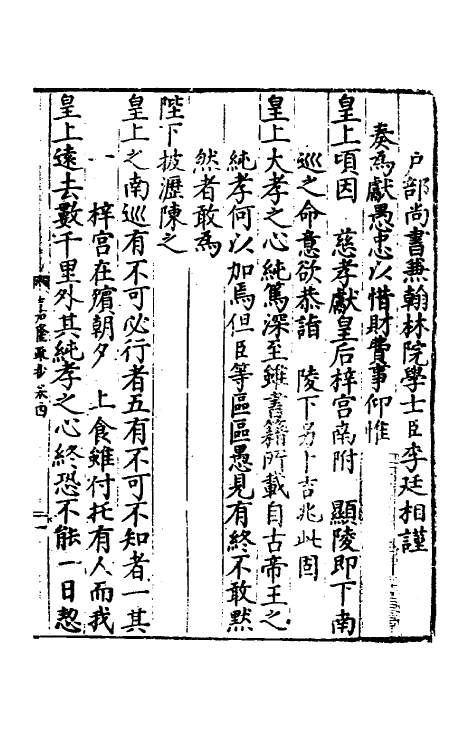 戶部尚書兼翰林院學士臣李廷相謹
奏為獻愚忠以惜財費事仰惟
皇上頃因 慈孝獻皇后梓宮南附 顯陵即下南
巡之命意欲恭詣 陵下另卜吉兆此固
皇上大孝之心純篤深至雖書籍所載自古帝王之
純孝何以加焉但臣等區區愚見有終不敢默
然者敢為
陛下披瀝陳之
皇上之南巡有不可必行者五有不可不知者一其
一 梓宮在殯朝夕 上食雖付托有人而我
皇上遠去數千里外其純孝之心終恐不能一日恝
嘉隆疏抄 卷四